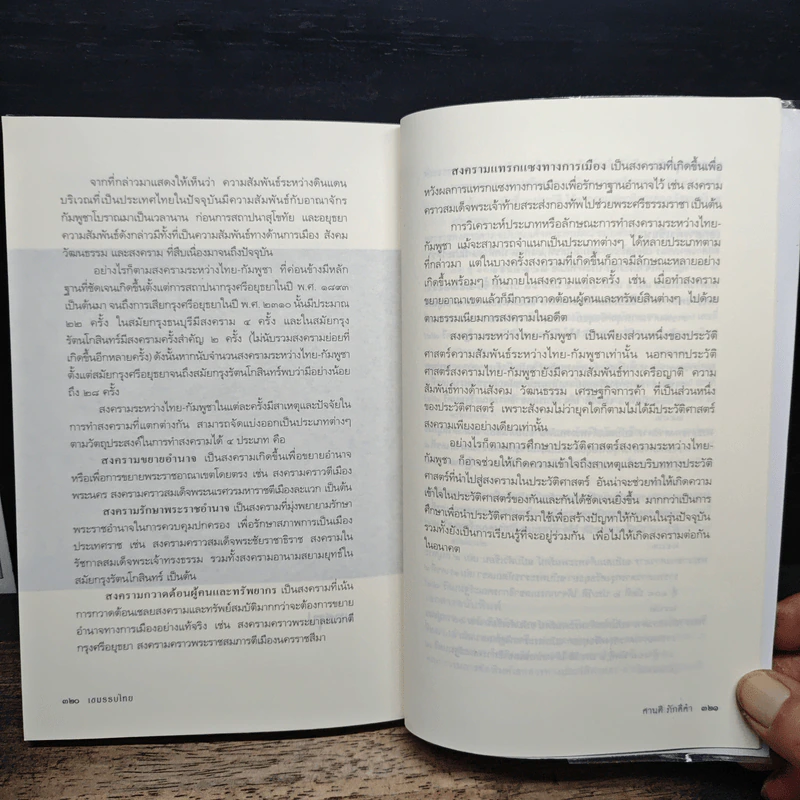 จากที่กล่าวมาแสดงให้เห็นว่า ความสัมพันธ์ระหว่างดินแดน
บริเวณที่เป็นประเทศไทยในปัจจุบันมีความสัมพันธ์กับอาณาจักร
กัมพูชาโบราณมาเป็นเวลานาน ก่อนการสถาปนาสุโขทัย และอยุธยา
ความสัมพันธ์ดังกล่าวมีทั้งที่เป็นความสัมพันธ์ทางด้านการเมือง สังคม
วัฒนธรรม และสงคราม ที่สืบเนื่องมาจนถึงปัจจุบัน
อย่างไรก็ตามสงครามระหว่างไทย-กัมพูชา ที่ค่อนข้างมีหลัก
ฐานที่ชัดเจนเกิดขึ้นตั้งแต่การสถาปนากรุงศรีอยุธยาในปี พ.ศ. ๑๘๙๓
เป็นต้นมา จนถึงการเสียกรุงศรีอยุธยาในปี พ.ศ. ๒๓๑๐ นั้นมีประมาณ
๒๒ ครั้ง ในสมัยกรุงธนบุรีมีสงคราม ๔ ครั้ง และในสมัยกรุง
รัตนโกสินทร์มีสงครามครั้งสำคัญ ๒ ครั้ง (ไม่นับรวมสงครามย่อยที่
เกิดขึ้นอีกหลายครั้ง) ดังนั้นหากนับจำนวนสงครามระหว่างไทย-กัมพูชา
ตั้งแต่สมัยกรุงศรีอยุธยาจนถึงสมัยกรุงรัตนโกสินทร์พบว่ามีอย่างน้อย
ถึง ๒๘ ครั้ง
สงครามระหว่างไทย-กัมพูชาในแต่ละครั้งมีสาเหตุและปัจจัยใน
การทำสงครามที่แตกต่างกัน สามารถจัดแบ่งออกเป็นประเภทต่างๆ
ตามวัตถุประสงค์ในการทำสงครามได้ ๔ ประเภท คือ
สงครามขยายอำนาจ เป็นสงครามเกิดขึ้นเพื่อขยายอำนาจ
หรือเพื่อการขยายพระราชอาณาเขตโดยตรง เช่น สงครามคราวตีเมือง
พระนคร สงครามคราวสมเด็จพระนเรศวรมหาราชตีเมืองละแวก เป็นต้น
สงครามรักษาพระราชอำนาจ เป็นสงครามที่มุ่งพยายามรักษา
พระราชอำนาจในการควบคุมปกครอง เพื่อรักษาสภาพการเป็นเมือง
ประเทศราช เช่น สงครามคราวสมเด็จพระชัยราชาธิราช สงครามใน
รัชกาลสมเด็จพระเจ้าทรงธรรม รวมทั้งสงครามอานามสยามยุทธ์ใน
สมัยกรุงรัตนโกสินทร์ เป็นต้น
สงครามกวาดต้อนผู้คนและทรัพยากร เป็นสงครามที่เน้น
การกวาดต้อนเชลยสงครามและทรัพย์สมบัติมากกว่าจะต้องการขยาย
อำนาจทางการเมืองอย่างแท้จริง เช่น สงครามคราวพระยาละแวกตี
กรุงศรีอยุธยา สงครามคราวพระราชสมภารตีเมืองนครราชสีมา
๓๒๐ เขมรรบไทย
สงครามแทรกแซงทางการเมือง เป็นสงครามที่เกิดขึ้นเพื่อ
หวังผลการแทรกแซงทางการเมืองเพื่อรักษาฐานอำนาจไว้ เช่น สงคราม
คราวสมเด็จพระเจ้าท้ายสระส่งกองทัพไปช่วยพระศรีธรรมราชา เป็นต้น
การวิเคราะห์ประเภทหรือลักษณะการทำสงครามระหว่างไทย-
กัมพูชา แม้จะสามารถจำแนกเป็นประเภทต่างๆ ได้หลายประเภทตาม
ที่กล่าวมา แต่ในบางครั้งสงครามที่เกิดขึ้นก็อาจมีลักษณะหลายอย่าง
เกิดขึ้นพร้อมๆ กันภายในสงครามแต่ละครั้ง เช่น เมื่อทำสงคราม
ขยายอาณาเขตแล้วก็มีการกวาดต้อนผู้คนและทรัพย์สินต่างๆ ไปด้วย
ตามธรรมเนียมการสงครามในอดีต
สงครามระหว่างไทย-กัมพูชา เป็นเพียงส่วนหนึ่งของประวัติ
ศาสตร์ความสัมพันธ์ระหว่างไทย-กัมพูชาเท่านั้น นอกจากประวัติ
ศาสตร์สงครามไทย-กัมพูชายังมีความสัมพันธ์ทางเครือญาติ ความ
สัมพันธ์ทางด้านสังคม วัฒนธรรม เศรษฐกิจการค้า ที่เป็นส่วนหนึ่ง
ของประวัติศาสตร์ เพราะสังคมไม่ว่ายุคใดก็ตามไม่ได้มีประวัติศาสตร์
สงครามเพียงอย่างเดียวเท่านั้น
อย่างไรก็ตามการศึกษาประวัติศาสตร์สงครามระหว่างไทย-
กัมพูชา ก็อาจช่วยให้เกิดความเข้าใจถึงสาเหตุและบริบททางประวัติ
ศาสตร์ที่นำไปสู่สงครามในประวัติศาสตร์ อันน่าจะช่วยทำให้เกิดความ
เข้าใจในประวัติศาสตร์ของกันและกันได้ชัดเจนยิ่งขึ้น มากกว่าเป็นการ
ศึกษาเพื่อนำประวัติศาสตร์มาใช้เพื่อสร้างปัญหาให้กับคนในรุ่นปัจจุบัน
รวมทั้งยังเป็นการเรียนรู้ที่จะอยู่ร่วมกัน เพื่อไม่ให้เกิดสงครามต่อกัน
ในอนาคต
ศานติ ภักดีคำ ๓๒๑